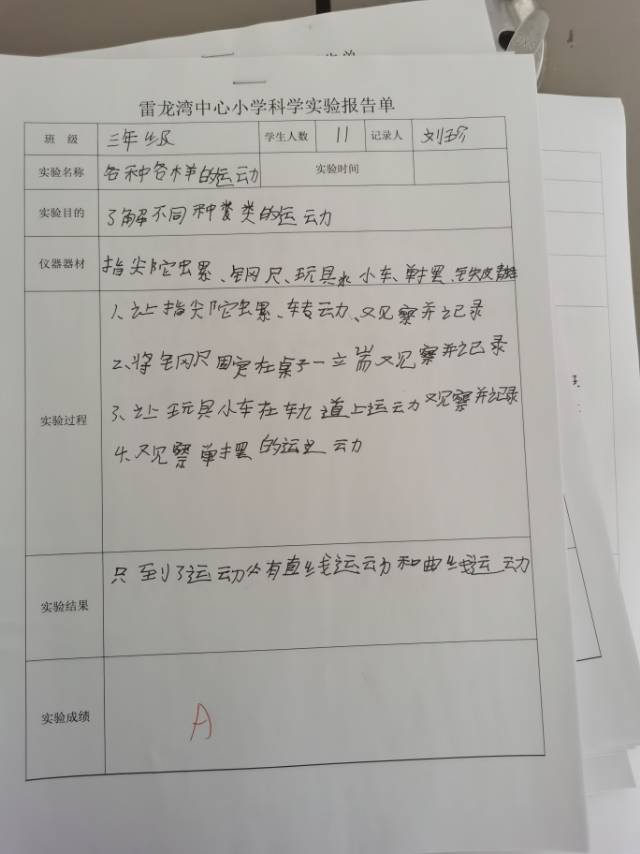 雷龙湾中心小学科学实验报告单
班 级 三年级 学生人数 11 记录人 刘
实验名称 各种各样的运动 实验时间
实验目的 了解不同种类的运动
仪器器材 指尖陀螺、钢尺、玩具 小车、单摆、
1、让指尖陀螺、转动、观察并记录
2、将钢尺固定在桌子一端观察并记录
3、让玩具小车在轨道上运动观察并记录
4、观察单摆的运 动
实验过程
只 到了运动分有直线运动和曲线运动
实验结果
实验成绩 A